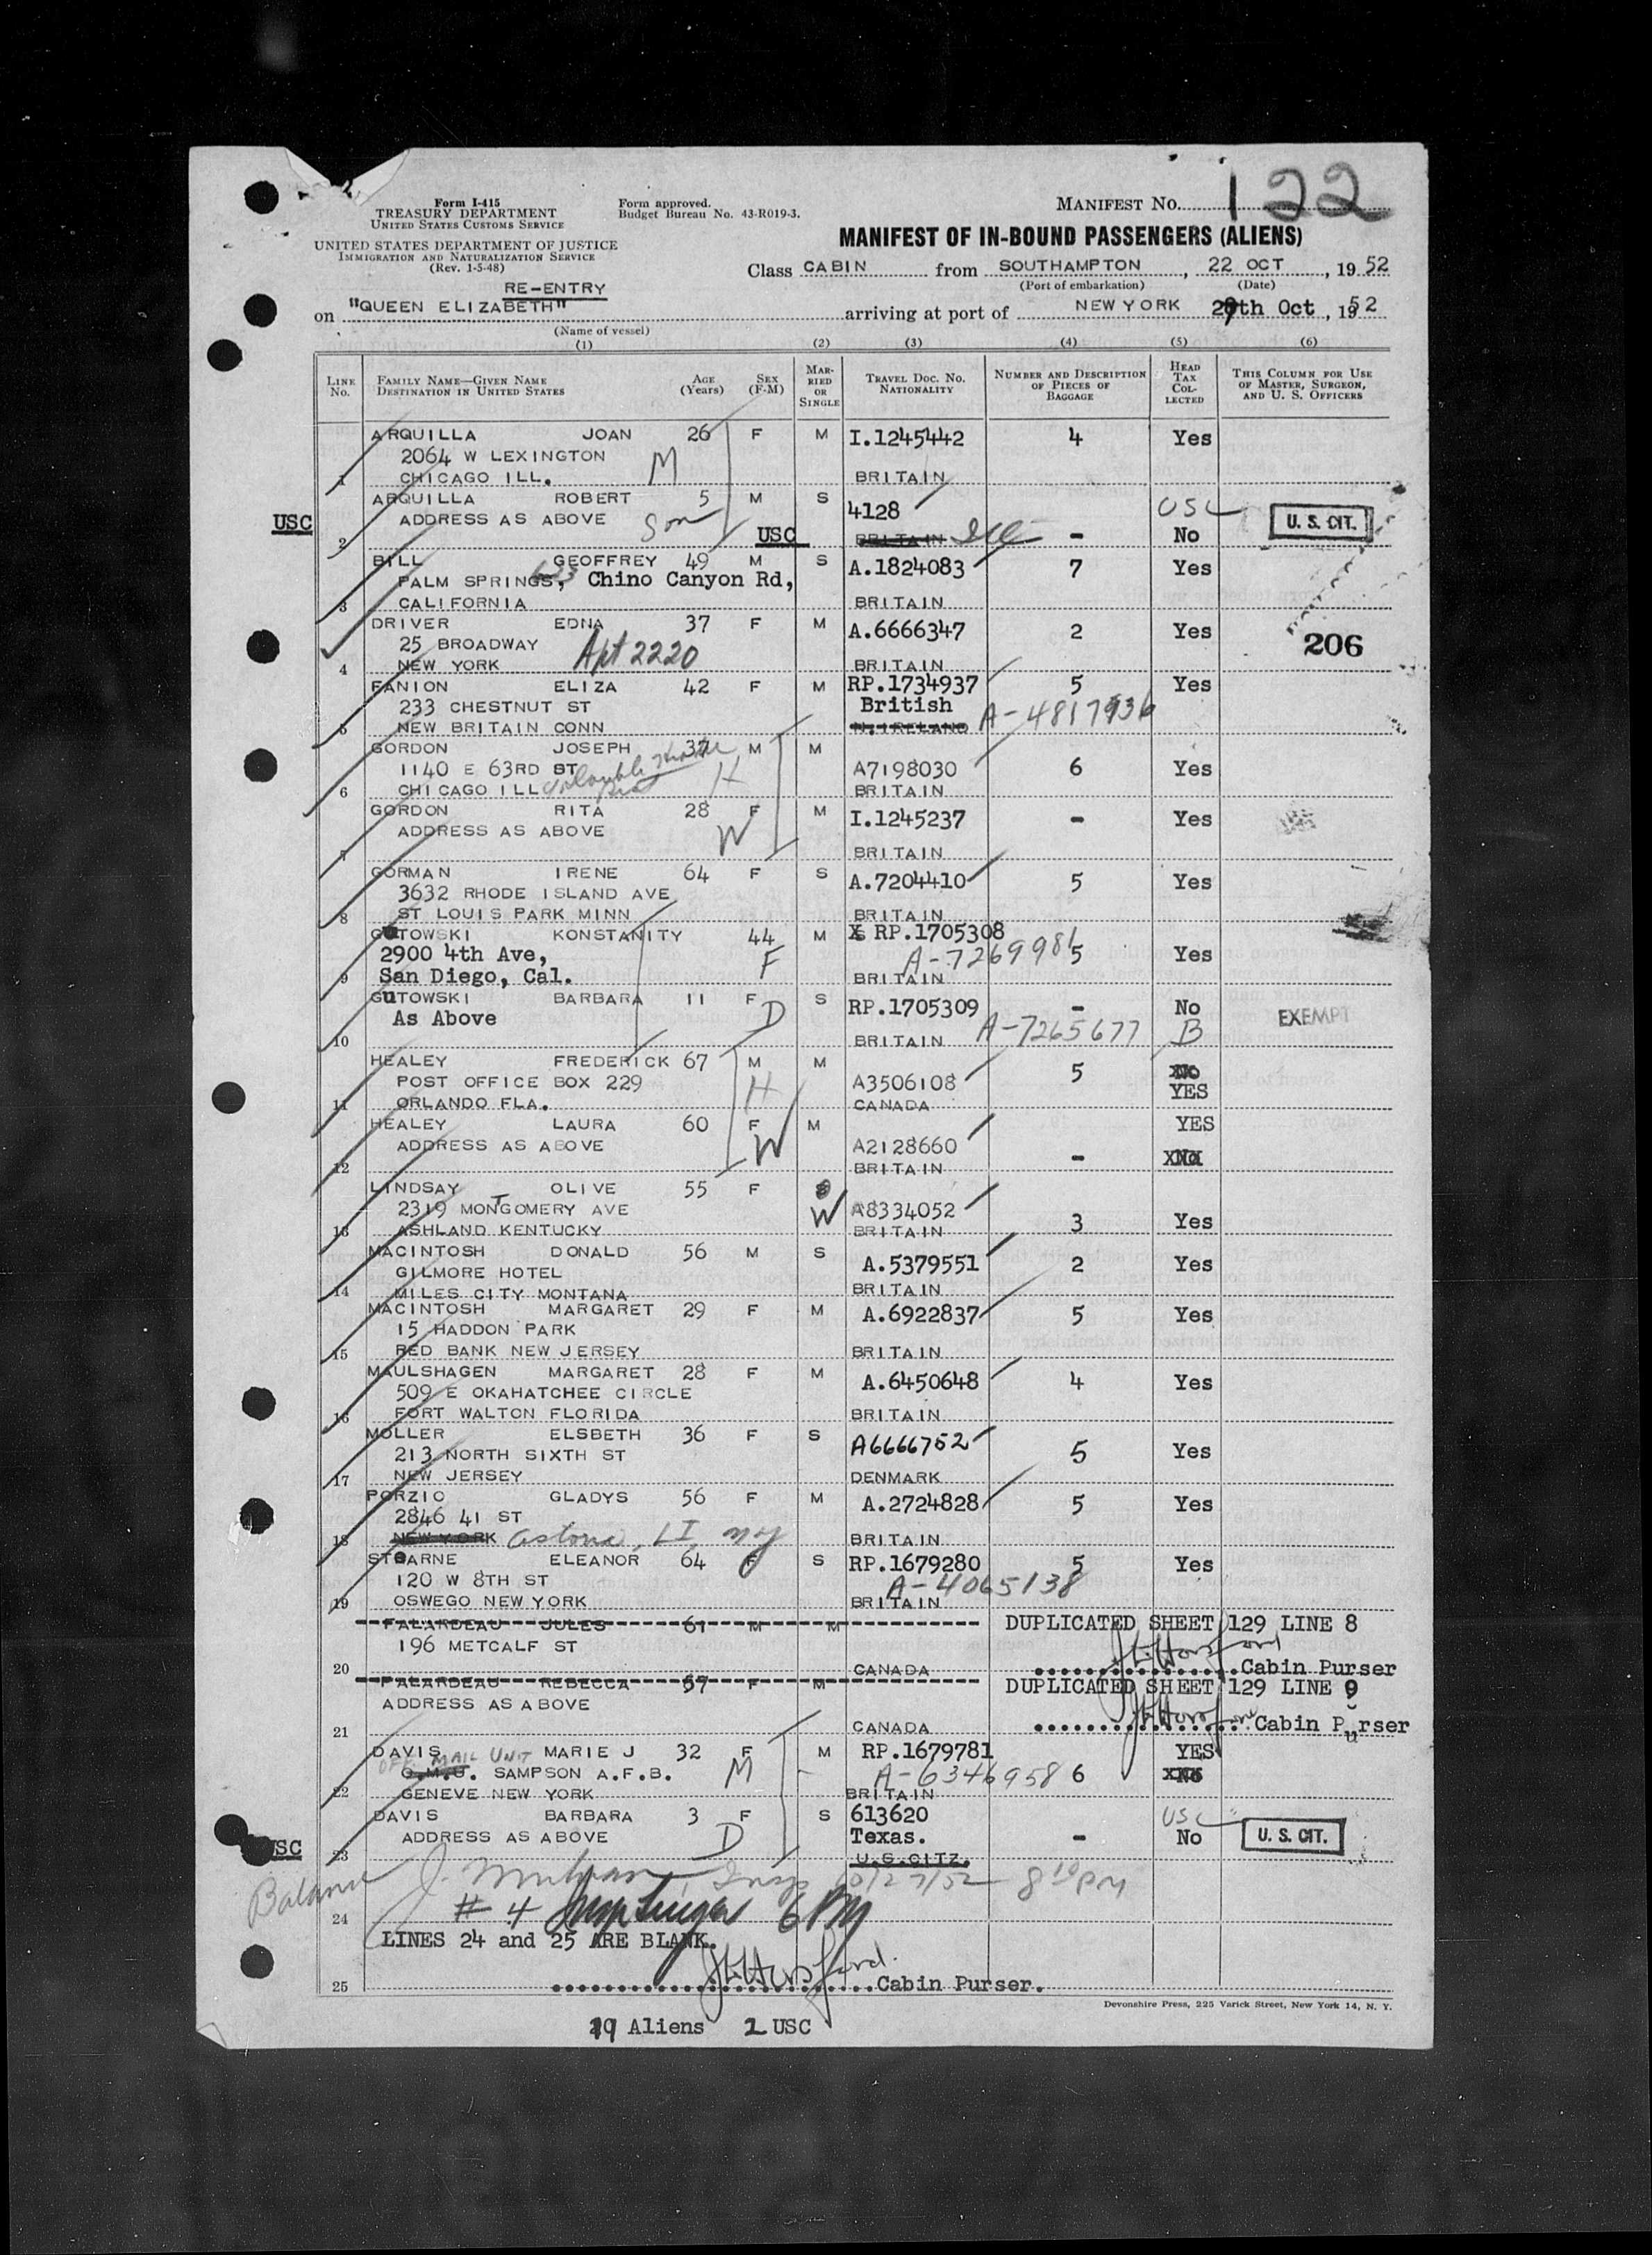 122
Form I-415
TREASURY DEPARTMENT
UNITED STATES CUSTOMS SERVICE
UNITED STATES DEPARTMENT OF JUSTICE
IMMIGRATION AND NATURALIZATION SERVICE
(Rev. 1-5-48)
Form approved.
Budget Bureau No. 43-R019-3.
MANIFEST NO.
MANIFEST OF IN-BOUND PASSENGERS (ALIENS)
Class CABIN from SOUTHAMPTON, 22 OCT, 19 52
(Port of embarkation) (Date)
RE-ENTRY
on "QUEEN ELIZABETH" arriving at port of NEW YORK th Oct, 1952
(Name of vessel)
(1) (2) (3) (4) (5) (6)
LINE NO. FAMILY NAME—GIVEN NAME DESTINATION IN UNITED STATES AGE (Years) SEX (F-M) MARRIED OR SINGLE TRAVEL DOC. NO. NATIONALITY NUMBER AND DESCRIPTION OF PIECES OF BAGGAGE HEAD TAX COLLECTED THIS COLUMN FOR USE OF MASTER, SURGEON, AND U. S. OFFICERS
ARQUILLA JOAN 26 F M I.1245442 4 Yes
2064 W LEXINGTON M
1 CHICAGO ILL. BRITAIN
ARQUILLA ROBERT 5 M S 4128 USC
USC ADDRESS AS ABOVE Son U. S. CIT.
2 USC BRITAIN Ill - No
BILL GEOFFREY 49 M S A.1824083 7 Yes
PALM SPRINGS, Chino Canyon Rd,
3 CALIFORNIA BRITAIN
DRIVER EDNA 37 F M A.6666347 2 Yes
25 BROADWAY Apt 2220 206
4 NEW YORK BRITAIN
FANION ELIZA 42 F M RP.1734937 5 Yes
233 CHESTNUT ST British
5 NEW BRITAIN CONN N.IRELAND A-4817936
GORDON JOSEPH M M
1140 E 63RD ST H A7198030 6 Yes
6 CHICAGO ILL BRITAIN
GORDON RITA 28 F M I.1245237 - Yes
ADDRESS AS ABOVE W
7 BRITAIN
GORMAN IRENE 64 F S A.7204410 5 Yes
3632 RHODE ISLAND AVE
8 ST LOUIS PARK MINN BRITAIN
GUTOWSKI KONSTANITY 44 M RP.1705308
2900 4th Ave, F A-7269981 5 Yes
9 San Diego, Cal. BRITAIN
GUTOWSKI BARBARA 11 F S RP.1705309 - No
As Above D EXEMPT
10 BRITAIN A-7265677 B
HEALEY FREDERICK 67 M M 5 No
POST OFFICE BOX 229 H A3506108 YES
11 ORLANDO FLA. CANADA
HEALEY LAURA 60 F M YES
ADDRESS AS ABOVE W A2128660
12 BRITAIN - No
LINDSAY OLIVE 55 F
2319 MONTGOMERY AVE W A8334052 3 Yes
13 ASHLAND KENTUCKY BRITAIN
MACINTOSH DONALD 56 M S A.5379551 2 Yes
GILMORE HOTEL
14 MILES CITY MONTANA BRITAIN
MACINTOSH MARGARET 29 F M A.6922837 5 Yes
15 HADDON PARK
15 RED BANK NEW JERSEY BRITAIN
MAULSHAGEN MARGARET 28 F M A.6450648 4 Yes
509 E OKAHATCHEE CIRCLE
16 FORT WALTON FLORIDA BRITAIN
MOLLER ELSBETH 36 F S A6666752 5 Yes
213 NORTH SIXTH ST
17 NEW JERSEY DENMARK
PORZIO GLADYS 56 F M A.2724828 5 Yes
2846 41 ST
18 NEW YORK Astoria, LI, NY BRITAIN
STEARNE ELEANOR 64 F S RP.1679280 5 Yes
120 W 8TH ST A-4065138
19 OSWEGO NEW YORK BRITAIN
FALARDEAU JULES 61 M M DUPLICATED SHEET 129 LINE 8
196 METCALF ST
20 CANADA Cabin Purser
FALARDEAU REBECCA 57 F M DUPLICATED SHEET 129 LINE 9
ADDRESS AS ABOVE
21 CANADA Cabin Purser
DAVIS MARIE J 32 F M RP.1679781 YES
MAIL UNIT SAMPSON A.F.B. M A-6346958 6 No
22 GENEVE NEW YORK BRITAIN
DAVIS BARBARA 3 F S 613620 USC
USC ADDRESS AS ABOVE D Texas. - No U. S. CIT.
23 U.S.CITZ.
Balance 10/27/52 8 10 PM
24 # 4 6 PM
LINES 24 and 25 ARE BLANK.
25 Cabin Purser.
Devonshire Press, 225 Varick Street, New York 14, N. Y.
19 Aliens 2 USC